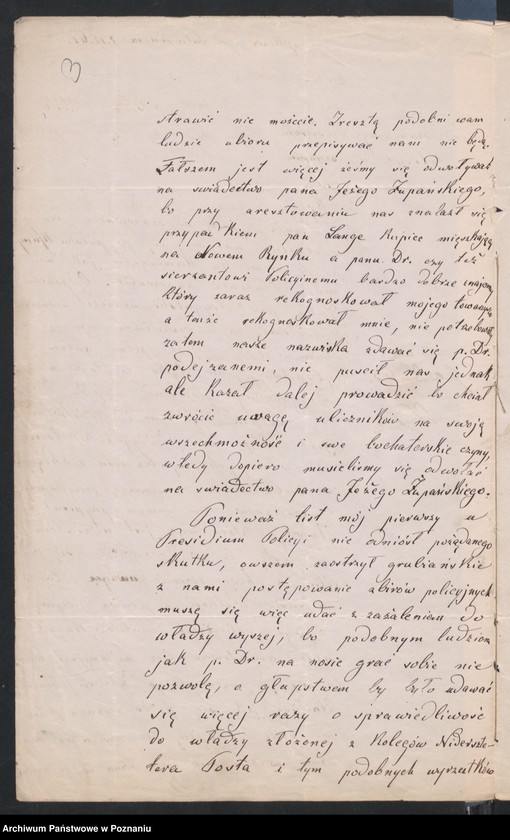 3
strawić nie możecie. Zresztą podobni wam
ludzie ubioru przepisywać nam nie będą.
Fałszem jest więcej żeśmy się odwoływali
na świadectwo pana Jeżego Żupańskiego,
bo przy aresztowaniu nas znalazł się
przypadkiem pan Lange kupiec mieszkający
na Nowem Rynku a panu Dr. czy też
sierzantowi Policyinemu bardzo dobrze znajomy
który zaraz rekognoskował mojego towarzysza
a tenże rekognoskował mnie, nie potrzebowały
zatem nasze nazwiska zdawać się p. Dr.
podejzanemi, nie puscił nas jednak,
ale kazał dalej prowadzić bo chciał
zwrócić uwagę uliczników na swoją
wszechmożność i swe bochaterskie czyny,
wtedy dopiero musielismy się odwołać
na swiadectwo pana Jeżego Żupańskiego.
Ponieważ list mój pierwszy u
Presidium Policyi nie odniósł pożądanego
skutku, owszem zaostrzył grubiańskie
z nami postępowanie zbirów policyjnych
muszę się więc udać z zażaleniem do
władzy wyszej, bo podobnym ludziom
jak p. Dr. na nosie grać sobie nie
pozwolę, a głupstwem by było udawać
się więcej razy o sprawiedliwość
do władzy złożonej z kolegów Niderszte-
tera Posta i tym podobnych wyrzutków
Archiwum Państwowe w Poznaniu